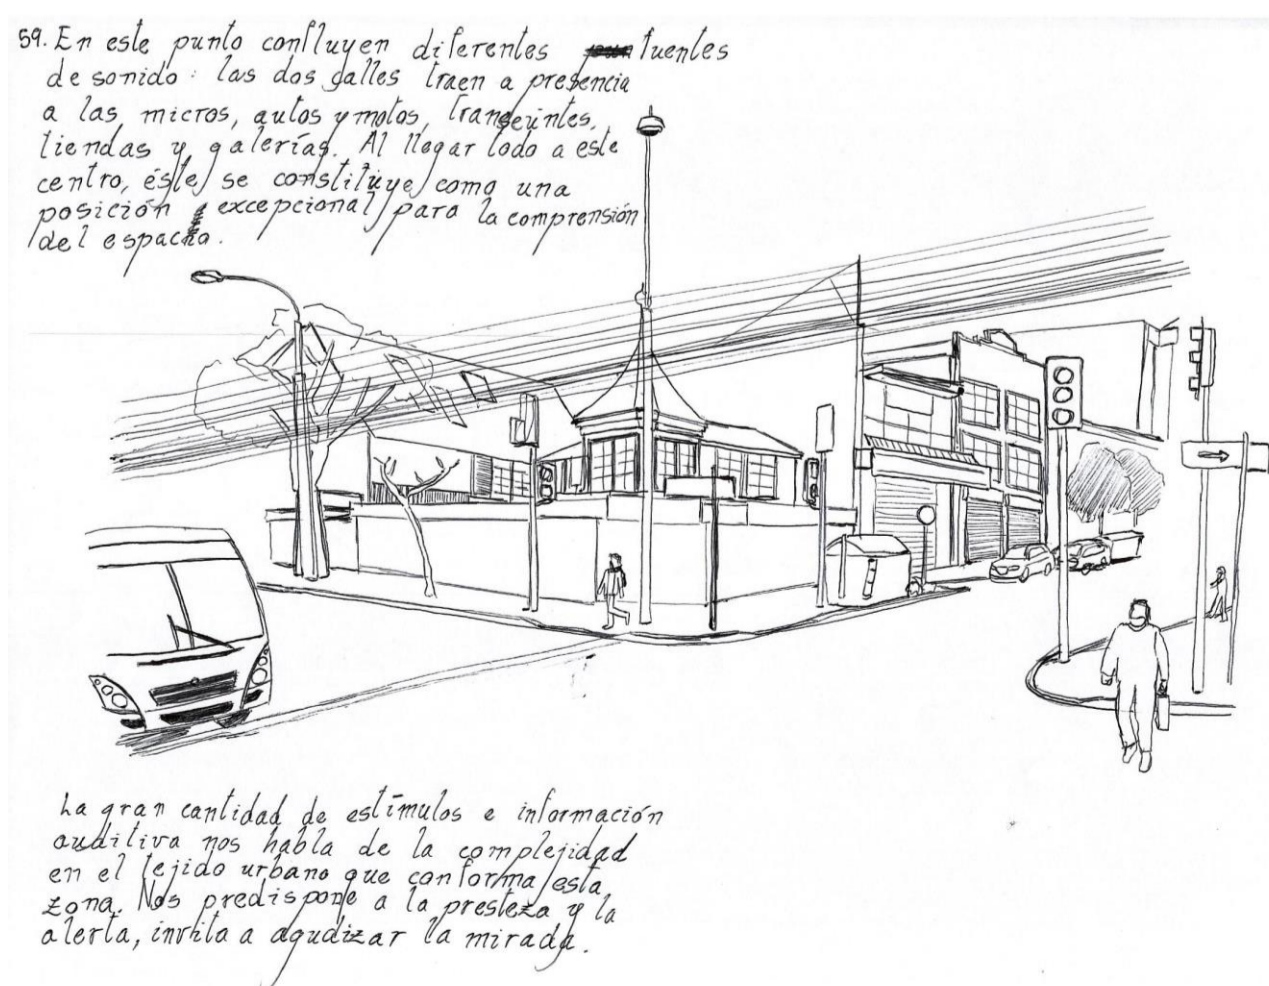 59. En este punto confluyen diferentes fuentes
de sonido: las dos calles traen a presencia
a las micros, autos y motos, transeúntes,
tiendas y galerías. Al llegar todo a este
centro, éste se constituye como una
posición excepcional para la comprensión
del espacio.
La gran cantidad de estímulos e información
auditiva nos habla de la complejidad
en el tejido urbano que conforma esta
zona. Nos predispone a la presteza y la
alerta, invita a agudizar la mirada.